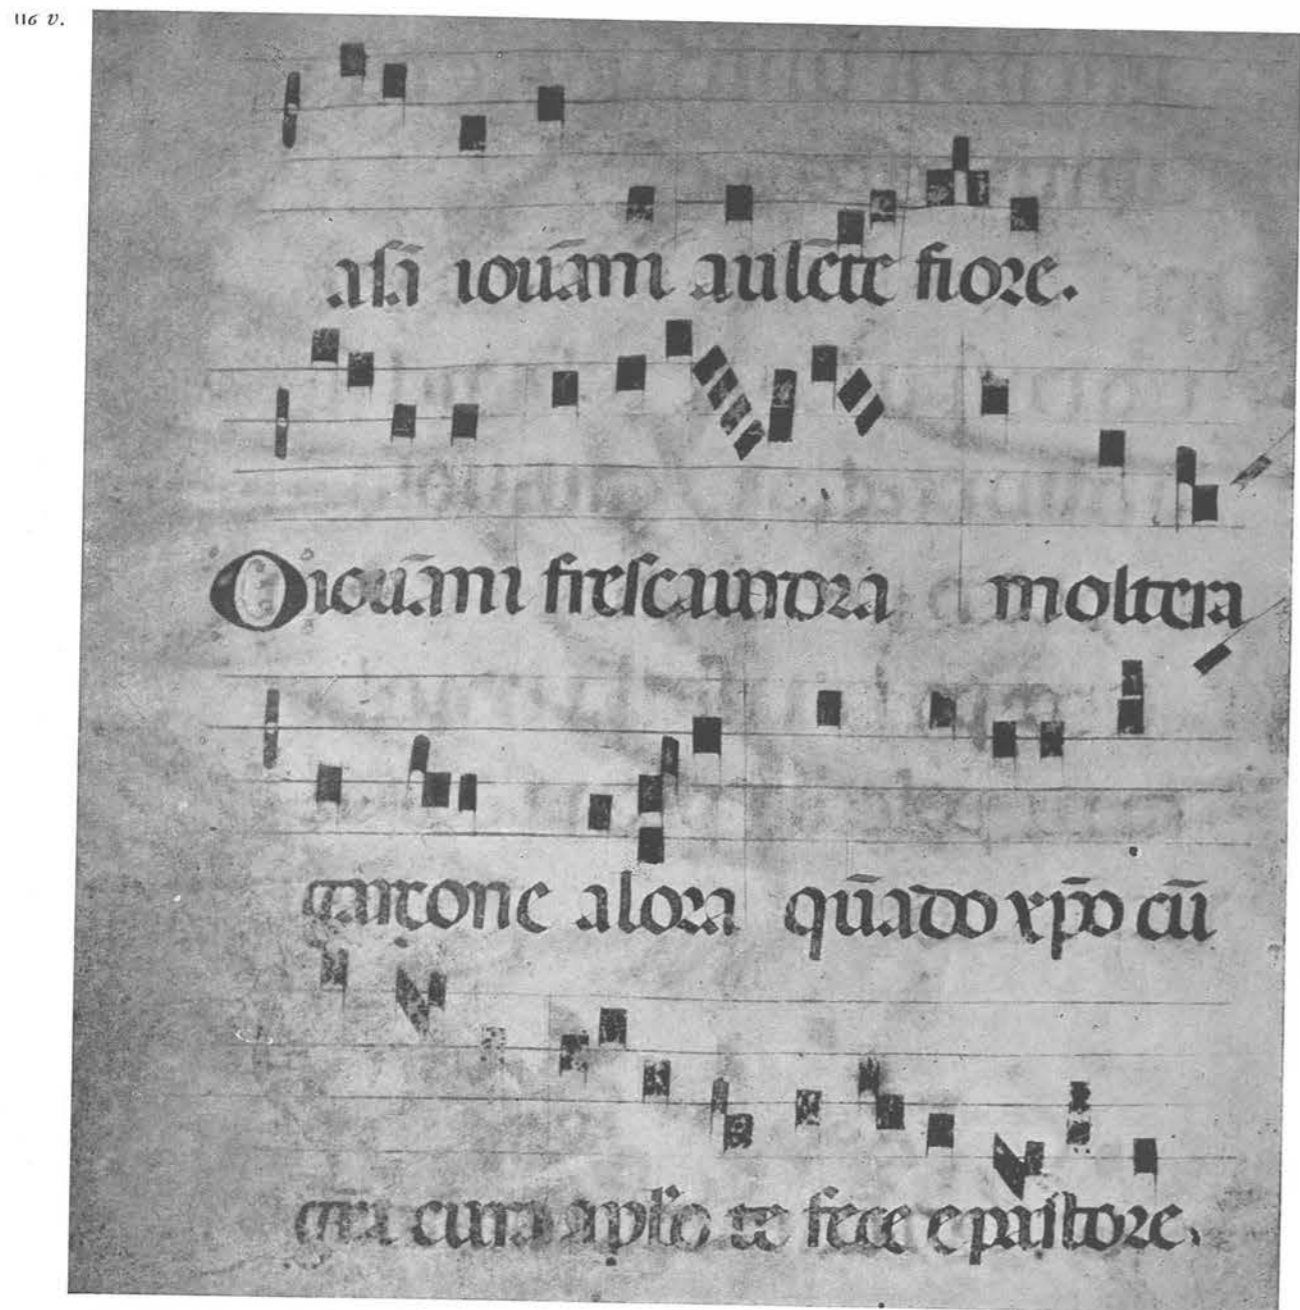 116 v.
asā iouāni aulēte fiore.
Oiouāni frescaurora moltera
garcone alora quādo xpō cū
gra cura aplo te fece e pastore.